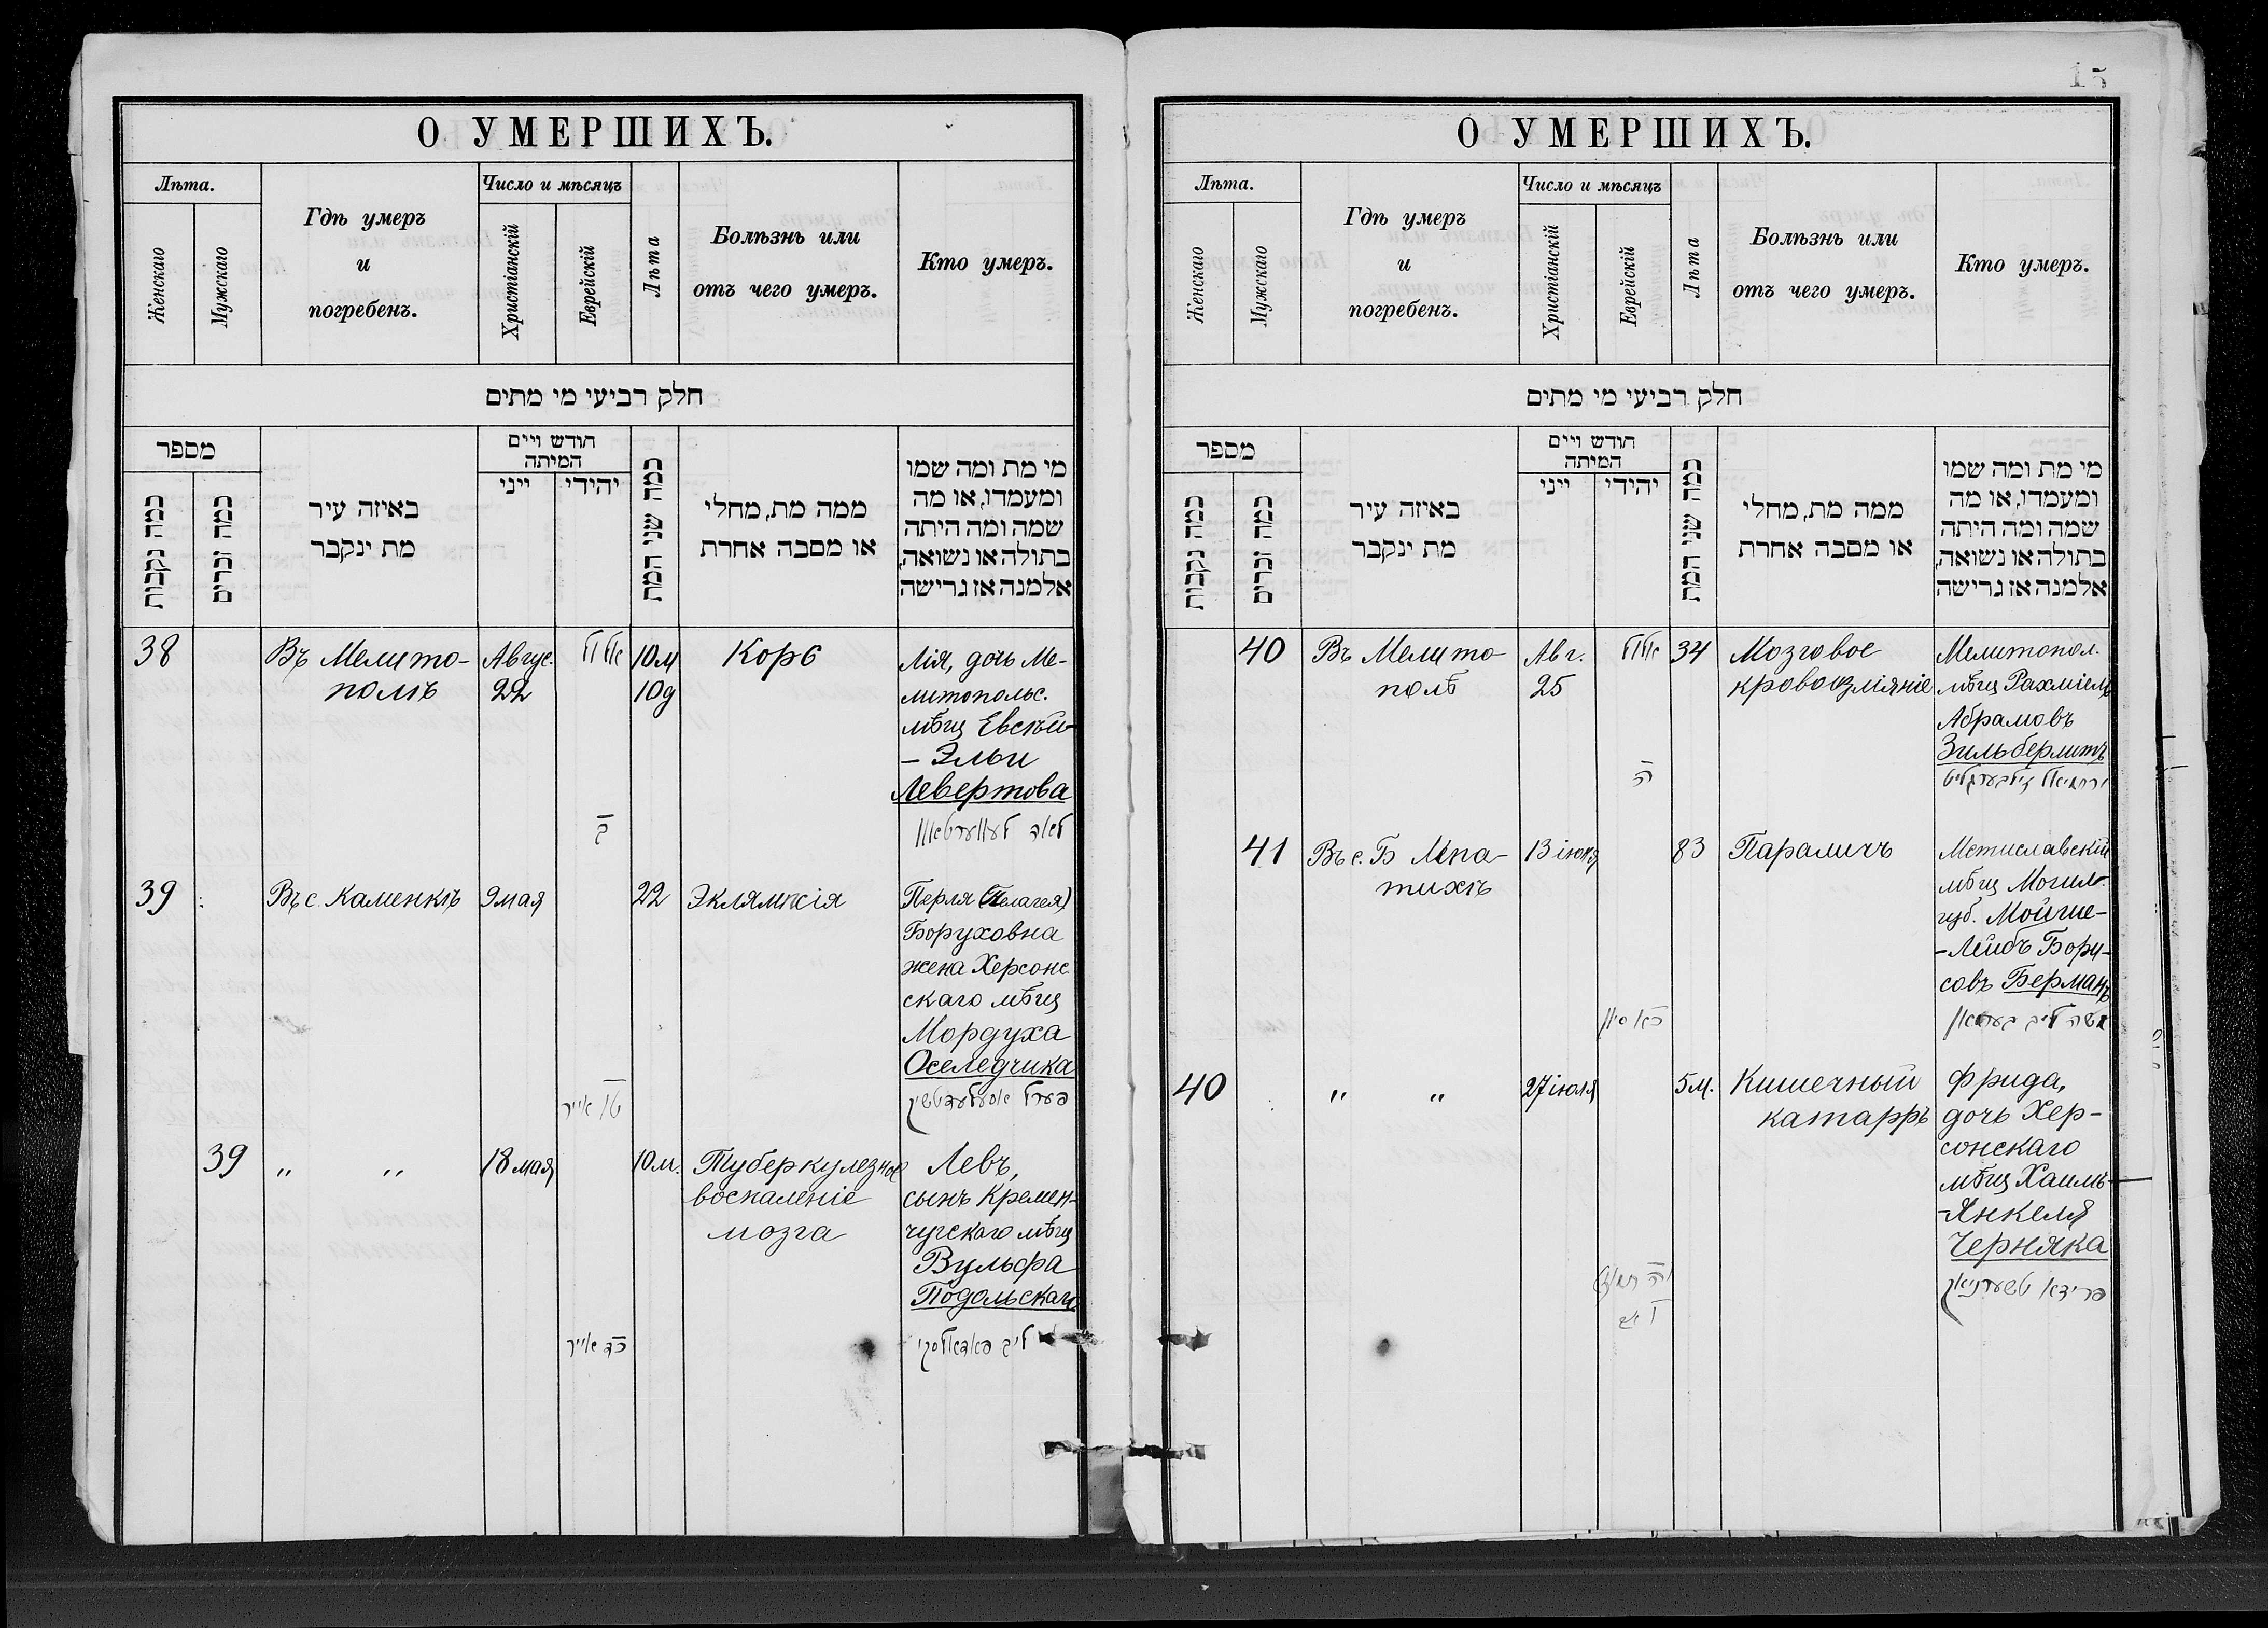 15
О УМЕРШИХЪ.
Лѣта.
Женскаго
Мужскаго
Гдѣ умеръ
и
погребенъ.
Число и мѣсяцъ
Христіанскій
Еврейскій
Лѣта
Болѣзнь или
отъ чего умеръ.
Кто умеръ.
חלק רביעי מי מתים
מספר
כמה נקבות
כמה זכרים
באיזה עיר
מת ינקבר
חודש ויים
המיתה
ייני
יהידי
כמה שני המת
ממה מת, מחלי
או מסבה אחרת
מי מת ומה שמו
ומעמדו, או מה
שמה ומה היתה
בתולה או נשואה,
אלמנה אז גרישה
38
Въ Мелито-
полѣ
Авгус.
22
אלול
כ
10м
10д
Корь
Лія, дочь Ме-
литопольс.
мѣщ Евсѣй-
- Эльи
Левертова
לאה לעווערטאוו
39
Въ с. Каменкѣ
9 мая
טו אייר
22
Эклямпсія
Перля (Пелагея)
Боруховна
жена Херсонс
скаго мѣщ
Мордуха
Оселедчика
פערל אסעלעדטשיק
39
" "
18 мая
כד אייר
10м.
Туберкулезное
воспаленіе
мозга
Левъ,
сынъ Кремен-
чугскаго мѣщ
Вульфа
Подольскаго
ליב פאדאלסקי
О УМЕРШИХЪ.
Лѣта.
Женскаго
Мужскаго
Гдѣ умеръ
и
погребенъ.
Число и мѣсяцъ
Христіанскій
Еврейскій
Лѣта
Болѣзнь или
отъ чего умеръ.
Кто умеръ.
חלק רביעי מי מתים
מספר
כמה נקבות
כמה זכרים
באיזה עיר
מת ינקבר
חודש ויים
המיתה
ייני
יהידי
כמה שני המת
ממה מת, מחלי
או מסבה אחרת
מי מת ומה שמו
ומעמדו, או מה
שמה ומה היתה
בתולה או נשואה,
אלמנה אז גרישה
40
Въ Мелито-
полѣ
Авг.
25
אלול
34
Мозговое
кровоизліяніе
Мелитопол.
мѣщ Рахміель
Абрамовъ
Зильберлитъ
41
Въ с. Б Лепа-
тихѣ
13 іюня
סיון
83
Параличъ
Мстиславскій
мѣщ Могил.
губ. Мойше-
-Лейбъ Бори-
совъ Берманъ
משה ליב בערמאן
40
" "
27 іюля
אב
5м.
Кишечный
катарръ
Фрида,
дочь Хер-
сонскаго
мѣщ Хаимъ-
-Янкеля
Черняка
פרידא טשערניאק